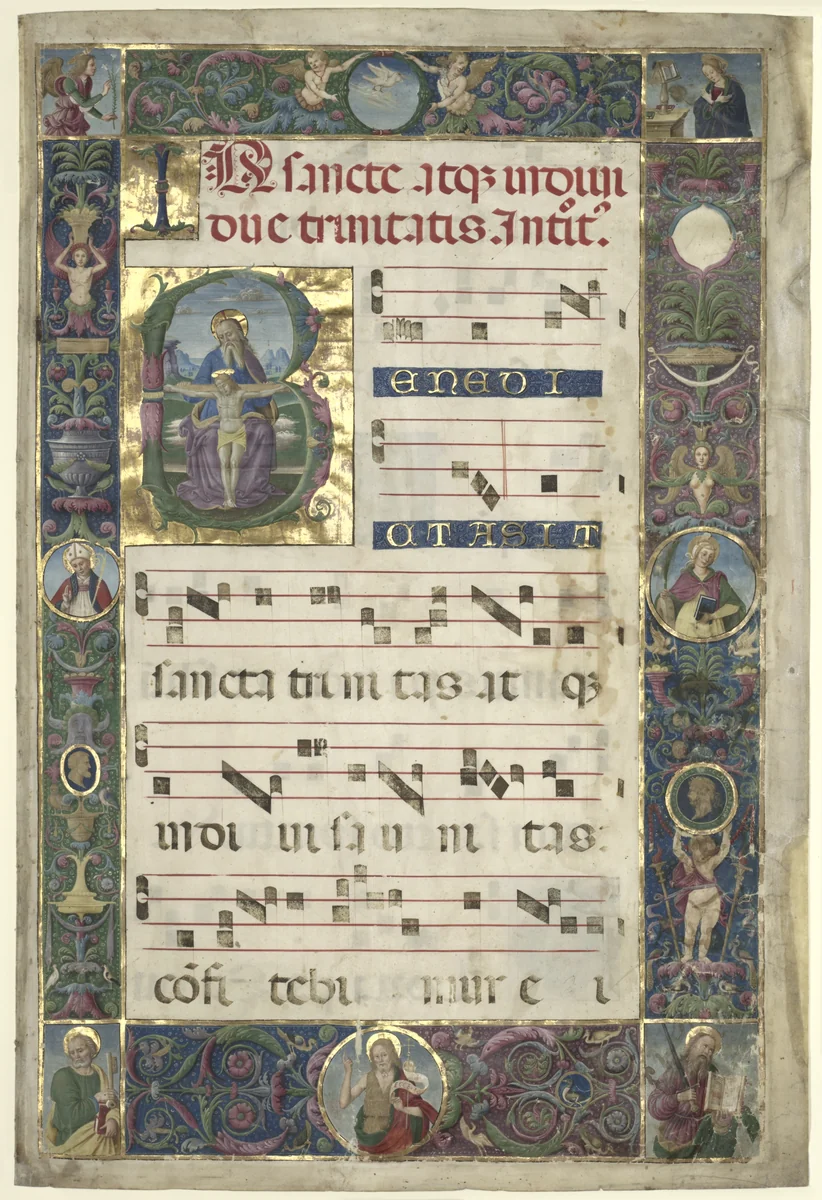 IN sancte atqꝫ indiui
due trinitatis. Introit.
BENEDI
CTA SIT
sancta trinitas atqꝫ
indiui sa uni tas:
cōfi tebi mur e i